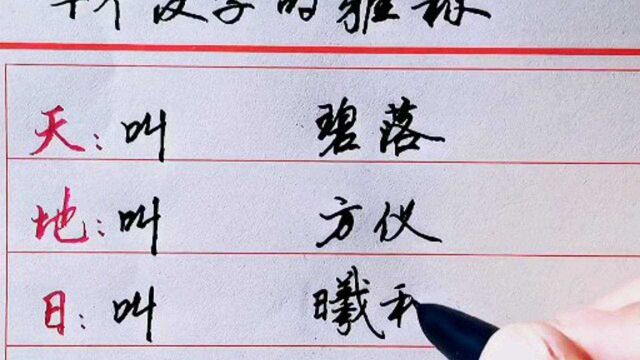 十个汉字的雅称
天:叫 碧落
地:叫 方仪
日:叫 曦